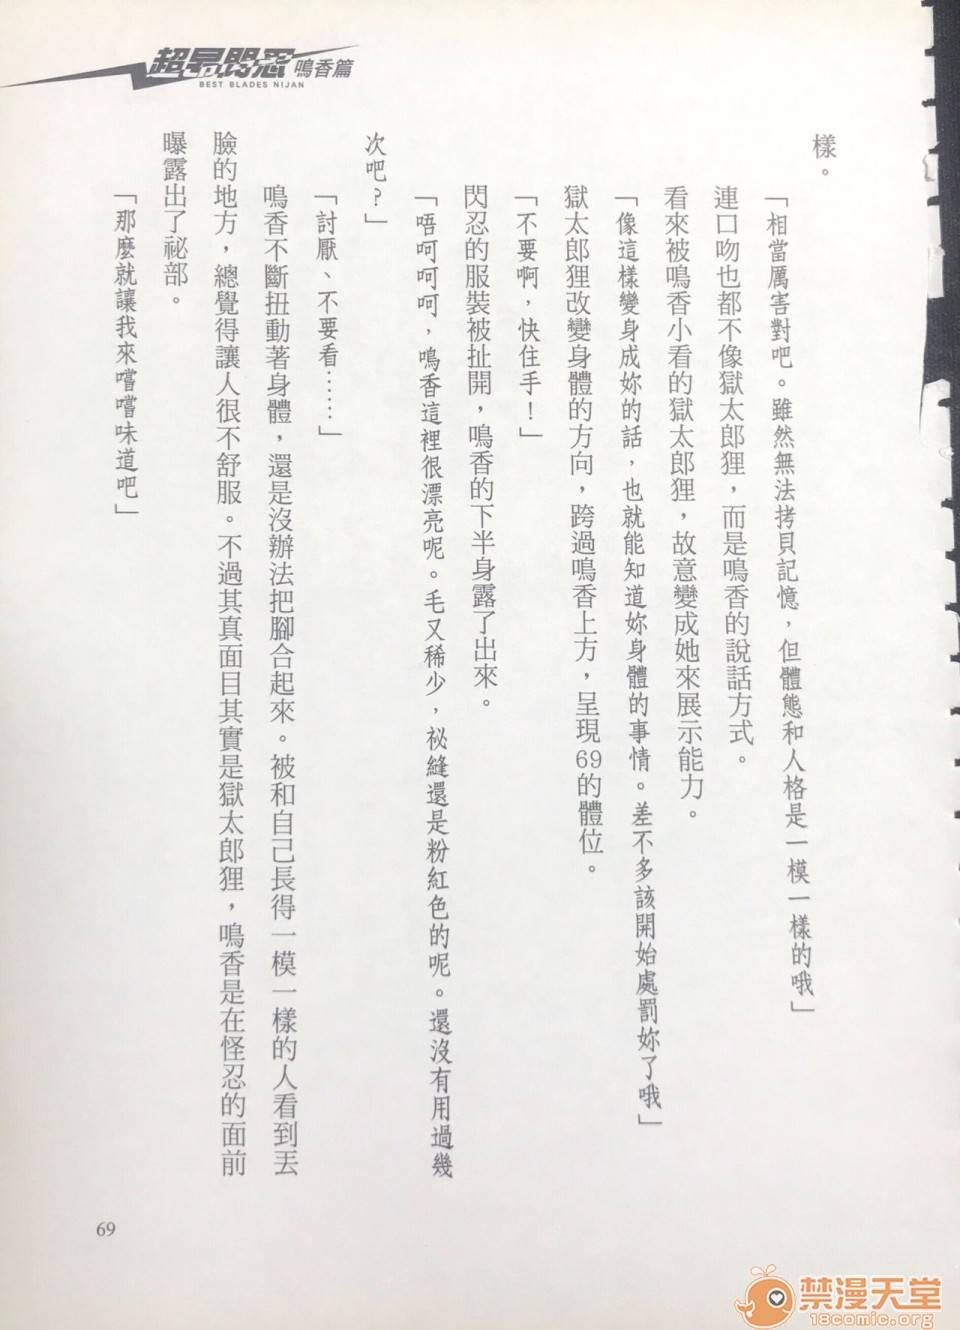 超昂閃忍 鳴香篇
BEST BLADES NIJAN
樣。
「相當厲害對吧。雖然無法拷貝記憶，但體態和人格是一模一樣的哦」
連口吻也都不像獄太郎狸，而是鳴香的說話方式。
看來被鳴香小看的獄太郎狸，故意變成她來展示能力。
「像這樣變身成妳的話，也就能知道妳身體的事情。差不多該開始處罰妳了哦」
獄太郎狸改變身體的方向，跨過鳴香上方，呈現69的體位。
「不要啊，快住手！」
閃忍的服裝被扯開，鳴香的下半身露了出來。
「唔呵呵呵，鳴香這裡很漂亮呢。毛又稀少，祕縫還是粉紅色的呢。還沒有用過幾
次吧？」
「討厭、不要看……」
鳴香不斷扭動著身體，還是沒辦法把腳合起來。被和自己長得一模一樣的人看到丟
臉的地方，總覺得讓人很不舒服。不過其真面目其實是獄太郎狸，鳴香是在怪忍的面前
曝露出了祕部。
「那麼就讓我來嚐嚐味道吧」
69
禁漫天堂
18comic.org